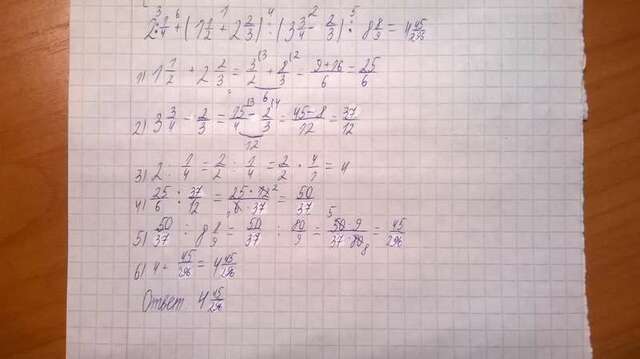 2:1/4+(1 1/2+2 2/3):(3 3/4-2/3):8 8/9=4 45/296
1) 1 1/2+2 2/3=3/2+8/3=(9+16)/6=25/6
2) 3 3/4-2/3=15/4-2/3=(45-8)/12=37/12
3) 2:1/4=2/2:1/4=2/2·4/1=4
4) 25/6:37/12=(25·12)/(6·37)=50/37
5) 50/37:8 8/9=50/37:80/9=(50·9)/(37·80)=45/296
6) 4+45/296=4 45/296
Ответ 4 45/296